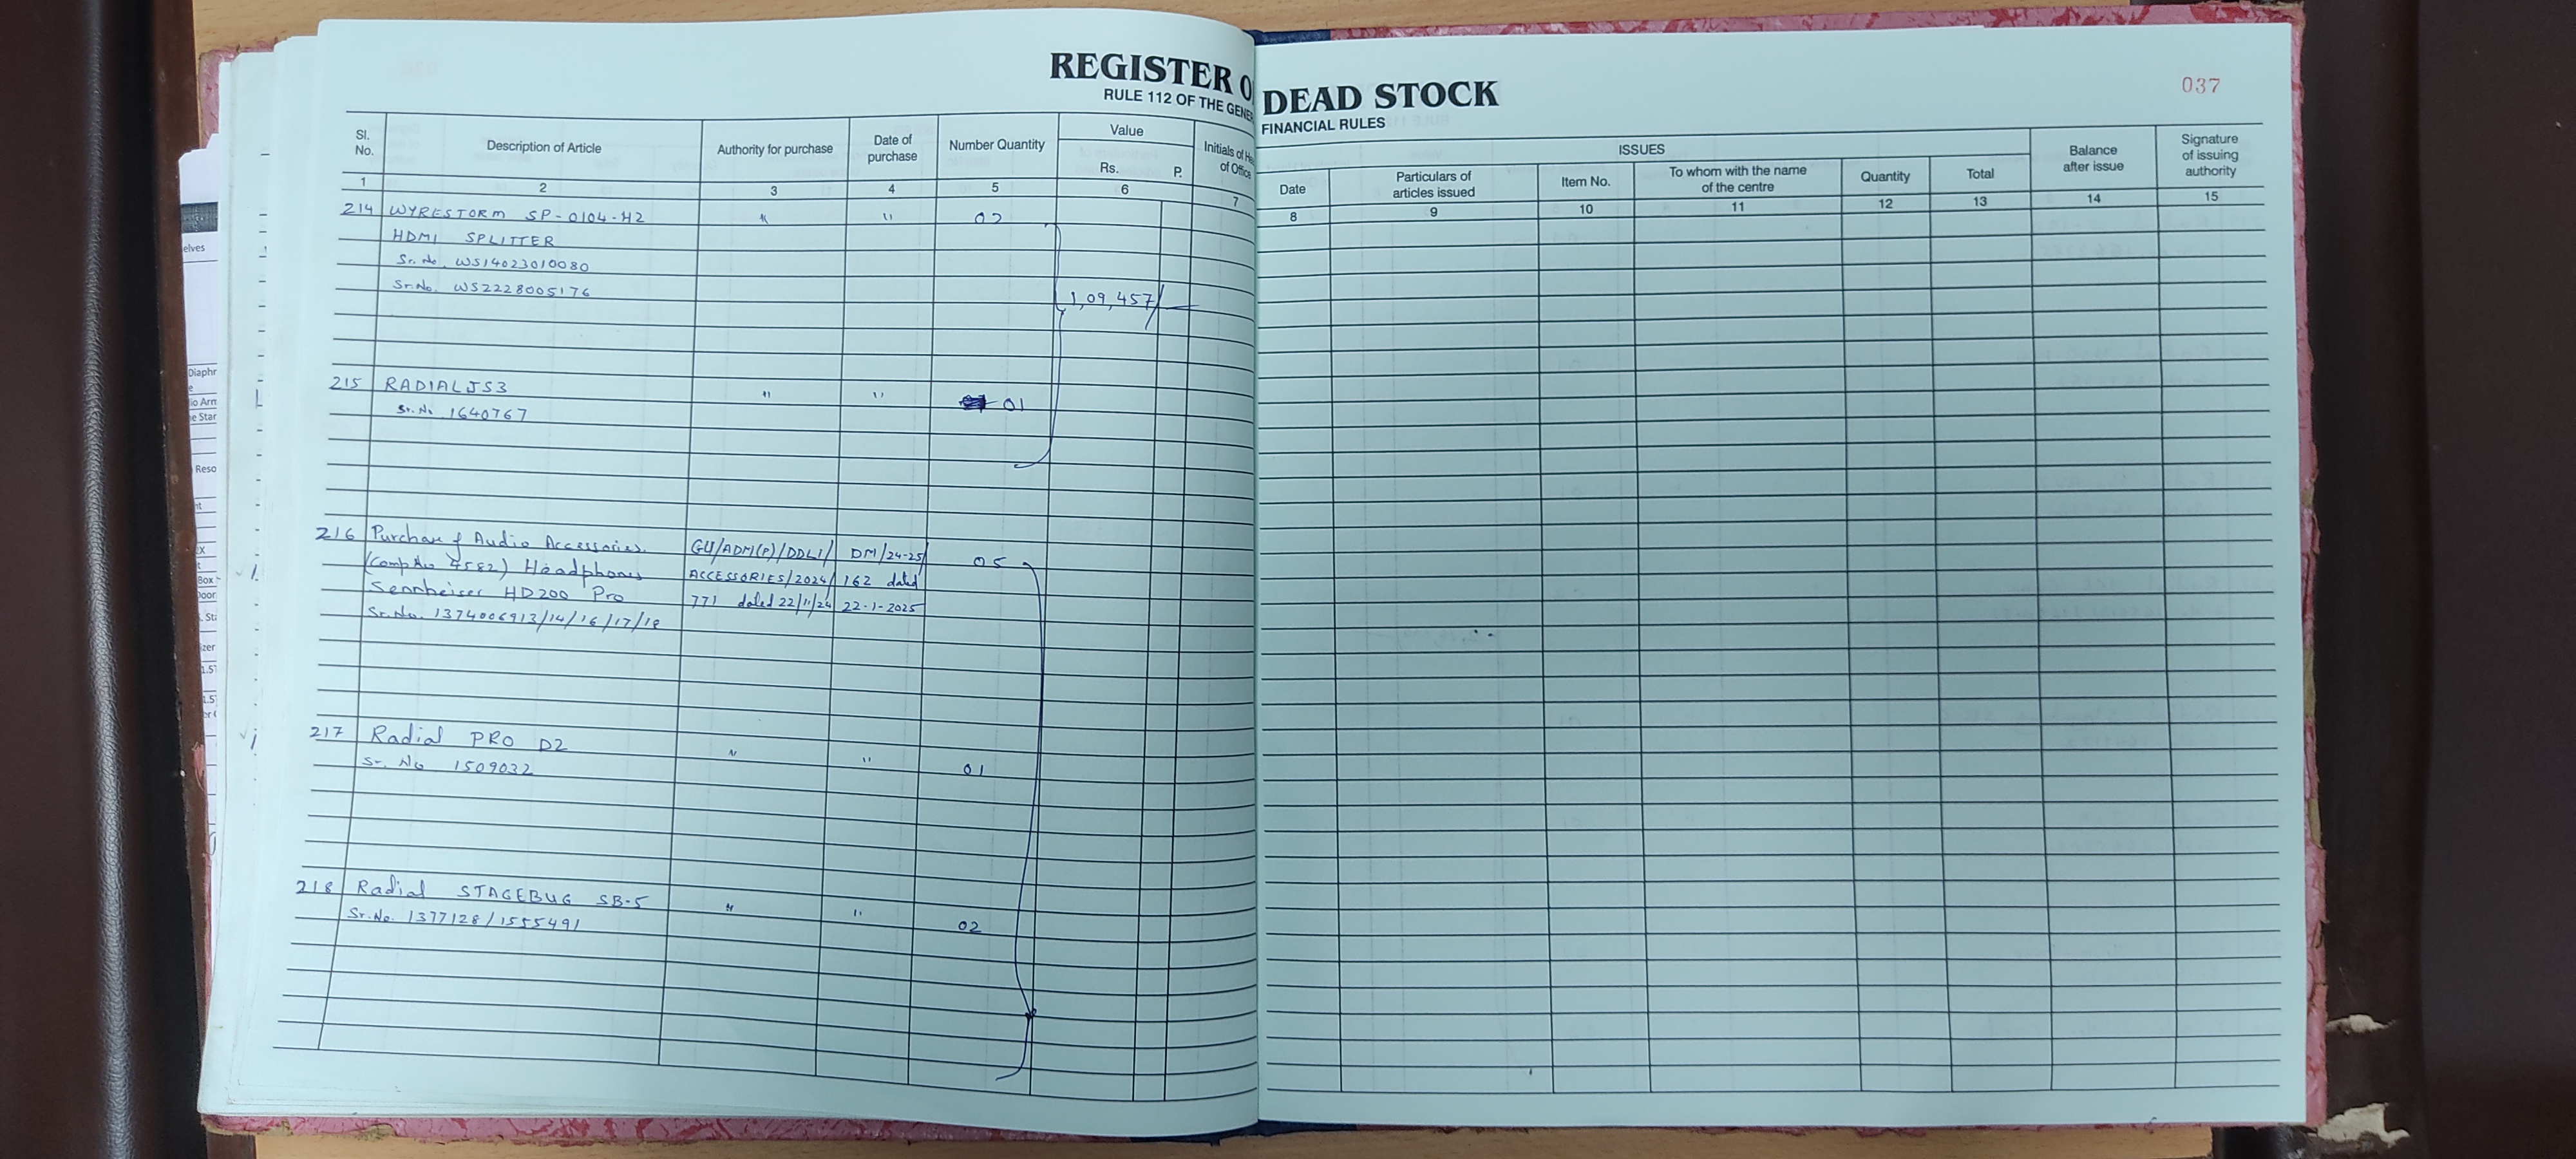 REGISTER O DEAD STOCK
037
RULE 112 OF THE GENE FINANCIAL RULES
Sl. No.
Description of Article
Authority for purchase
Date of purchase
Number Quantity
Value
Rs. P.
Initials of He
of Office
ISSUES
Date
Particulars of articles issued
Item No.
To whom with the name of the centre
Quantity
Total
Balance after issue
Signature of issuing authority
1 2 3 4 5 6 7 8 9 10 11 12 13 14 15
214 WYRESTORM SP-0104-H2 " " 02
HDMI SPLITTER
Sr. No. WS14023010080
Sr No. WS2228005176
1,09,457/-
215 RADIAL JS3 " " 01
Sr. No 1640767
216 Purchase of Audio Accessories GU/ADM(P)/DDLI/ DM/24-25/ 05
(Comp No 4582) Headphones ACCESSORIES/2024/ 162 dated
Sennheiser HD200 Pro 771 dated 22/11/24 22-1-2025
Sr.No. 1374006913/14/16/17/18
217 Radial PRO D2 " " 01
Sr. No 1509032
218 Radial STAGEBUG SB-5 " " 02
Sr.No. 1377128/1555491
elves
Diaphr
e
io Arm
e Star
Reso
nt
ox
t
Box
Door
. Sta
izer
1.5T
1.5
er (